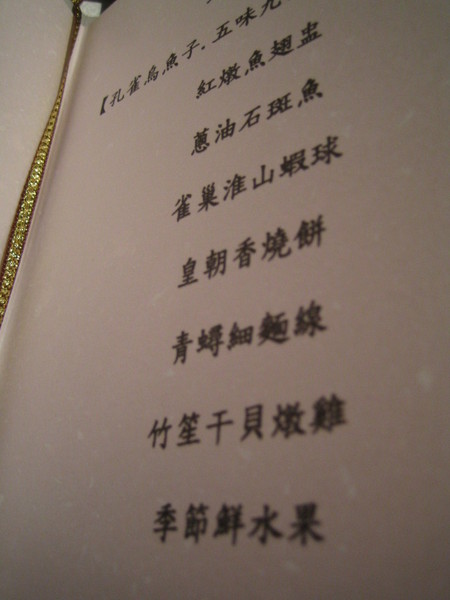 【孔雀烏魚子.五味九
紅燉魚翅盅
蔥油石斑魚
雀巢淮山蝦球
皇朝香燒餅
青蟳細麵線
竹笙干貝燉雞
季節鮮水果